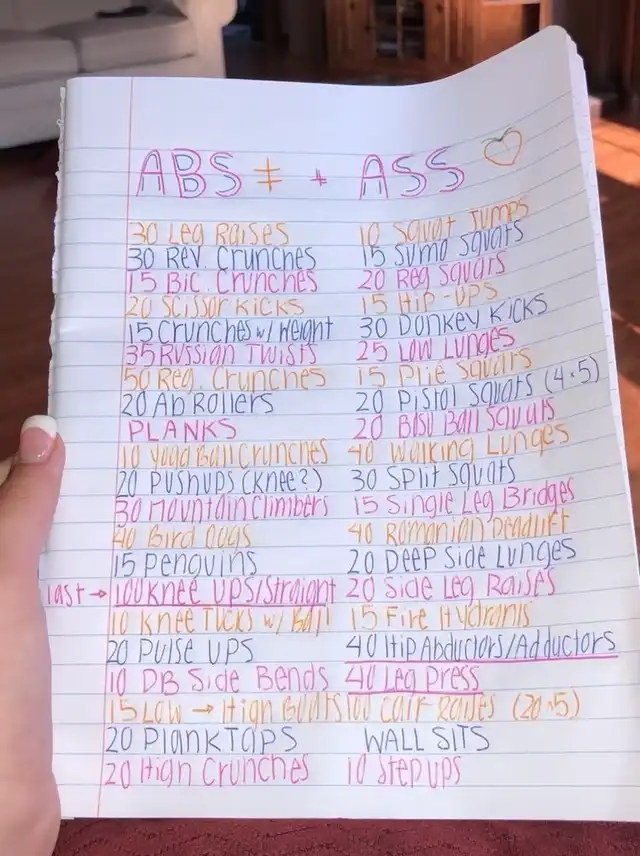 ABS ‡ + ASS ♡
30 Leg Raises
30 Rev. Crunches
15 Bic. Crunches
20 Scissor Kicks
15 Crunches w/ Weight
35 Russian Twists
50 Reg. Crunches
20 Ab Rollers
PLANKS
10 Yoga Ball Crunches
20 Pushups (Knee?)
30 Mountain Climbers
40 Bird Dogs
15 Penguins
last → 100 Knee Ups/Straight
10 Knee Tucks w/ Ball
20 Pulse Ups
10 DB Side Bends
15 Low → High Boats
20 Plank Taps
20 High Crunches
10 Squat Jumps
15 Sumo Squats
20 Reg Squats
15 Hip-Ups
30 Donkey Kicks
25 Low Lunges
15 Plie Squats
20 Pistol Squats (4×5)
20 Bosu Ball Squats
40 Walking Lunges
30 Split Squats
15 Single Leg Bridges
40 Romanian Deadlift
20 Deep Side Lunges
20 Side Leg Raises
15 Fire Hydrants
40 Hip Abductors/Adductors
40 Leg Press
100 Calf Raises (20×5)
WALL SITS
10 Step ups